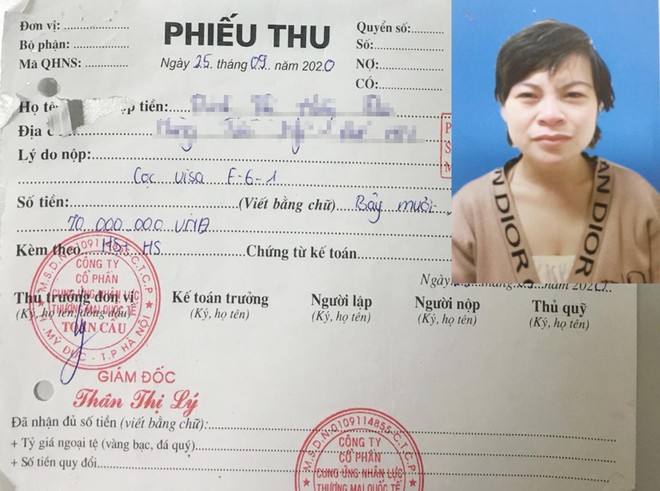 Đơn vị:
Bộ phận:
Mã QHNS:
PHIẾU THU
Ngày 25 tháng 09 năm 2020
Quyển số:
Số:
NỢ:
CÓ:
Họ tê p tiền:
Địa c
Lý do nộp:
Cọc visa F-6-1
Số tiền: (Viết bằng chữ) Bảy mươi
70.000.000 VNĐ
Kèm theo: HS Chứng từ kế toán.
Ngày
Thủ trưởng đơn vị Kế toán trưởng Người lập Người nộp Thủ quỹ
(Ký, họ tên, đóng dấu) (Ký, họ tên) (Ký, họ tên) (Ký, họ tên) (Ký, họ tên)
M.S.D.N:0109114855-C.T.C.P
CÔNG TY
CỔ PHẦN
CUNG ỨNG NHÂN LỰC
THƯƠNG MẠI QUỐC TẾ
TOÀN CẦU
MỸ ĐỨC - T.P HÀ NỘI
GIÁM ĐỐC
Thân Thị Lý
Đã nhận đủ số tiền (viết bằng chữ):
+ Tỷ giá ngoại tệ (vàng bạc, đá quý)
+ Số tiền quy đổi
M.S.D.N:0109114855-C.T.C.P
CÔNG TY
CỔ PHẦN
CUNG ỨNG NHÂN LỰC
THƯƠNG MẠI QUỐC TẾ
DIOR
AN DIOR